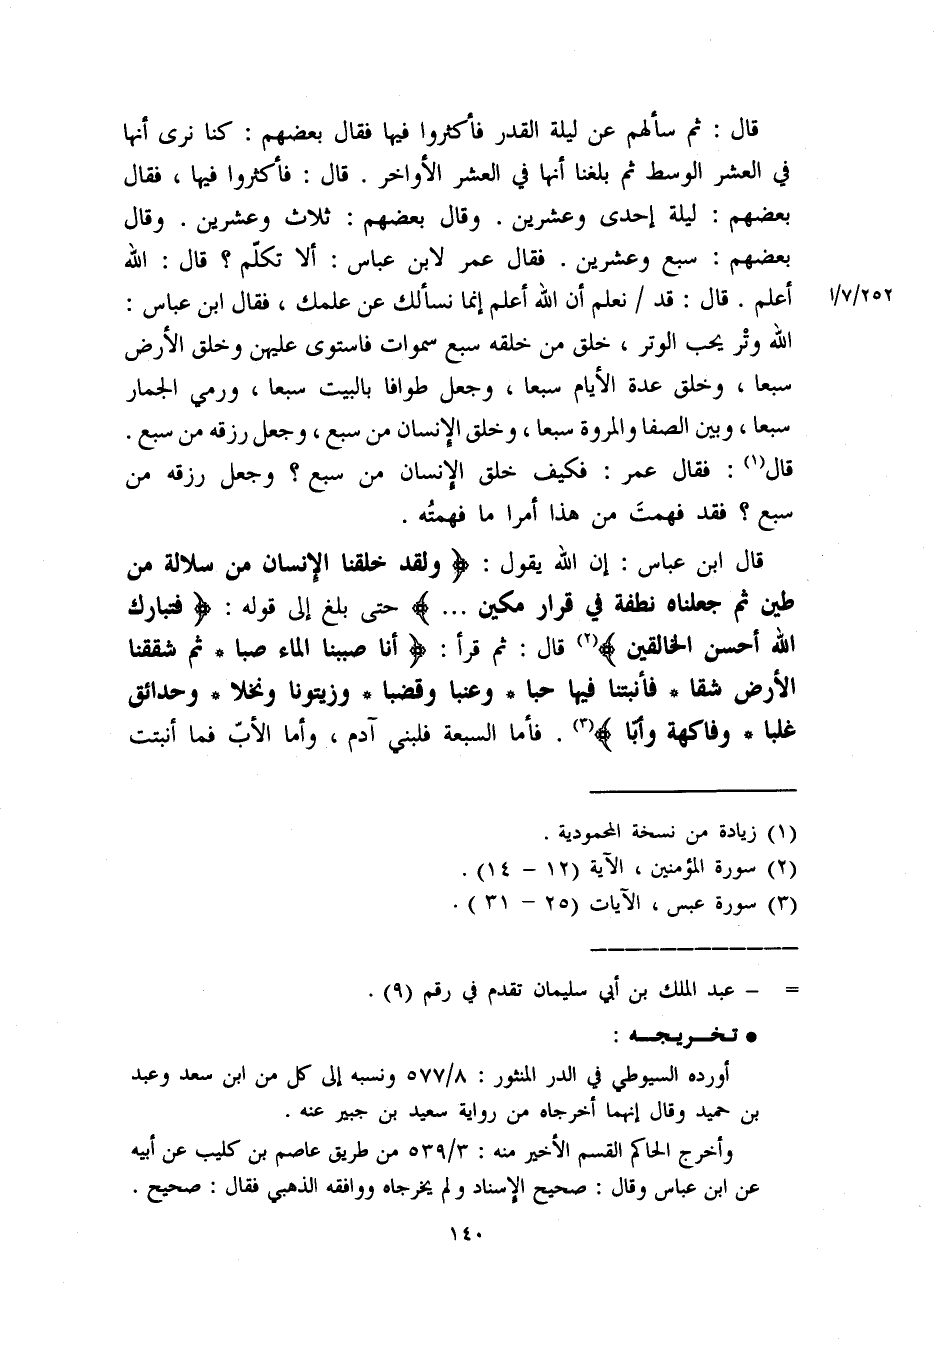 قال : ثم سألهم عن ليلة القدر فأكثروا فيها فقال بعضهم : كنا نرى أنها
في العشر الوسط ثم بلغنا أنها في العشر الأواخر . قال : فأكثروا فيها ، فقال
بعضهم : ليلة إحدى وعشرين . وقال بعضهم : ثلاث وعشرين . وقال
بعضهم : سبع وعشرين . فقال عمر لابن عباس : ألا تكلّم ؟ قال : الله
أعلم . قال : قد / نعلم أن الله أعلم إنما نسألك عن علمك ، فقال ابن عباس : ١/٧/٢٥٢
الله وتْر يحب الوتر ، خلق من خلقه سبع سموات فاستوى عليهن وخلق الأرض
سبعا ، وخلق عدة الأيام سبعا ، وجعل طوافا بالبيت سبعا ، ورمي الجمار
سبعا ، وبين الصفا والمروة سبعا ، وخلق الإنسان من سبع ، وجعل رزقه من سبع .
قال(١) : فقال عمر : فكيف خلق الإنسان من سبع ؟ وجعل رزقه من
سبع ؟ فقد فهمتَ من هذا أمرا ما فهمتُه .
قال ابن عباس : إن الله يقول : ﴿ ولقد خلقنا الإنسان من سلالة من
طين ثم جعلناه نطفة في قرار مكين ... ﴾ حتى بلغ إلى قوله : ﴿ فتبارك
الله أحسن الخالقين ﴾(٢) قال : ثم قرأ : ﴿ أنا صببنا الماء صبا * ثم شققنا
الأرض شقا * فأنبتنا فيها حبا * وعنبا وقضبا * وزيتونا ونخلا * وحدائق
غلبا * وفاكهة وأبّا ﴾(٣) . فأما السبعة فلبني آدم ، وأما الأبّ فما أنبتت
(١) زيادة من نسخة المحمودية .
(٢) سورة المؤمنين ، الآية (١٢ – ١٤) .
(٣) سورة عبس ، الآيات (٢٥ – ٣١ ) .
= – عبد الملك بن أبي سليمان تقدم في رقم (٩) .
• تـخـريـجـه :
أورده السيوطي في الدر المنثور : ٥٧٧/٨ ونسبه إلى كل من ابن سعد وعبد
بن حميد وقال إنهما أخرجاه من رواية سعيد بن جبير عنه .
وأخرج الحاكم القسم الأخير منه : ٥٣٩/٣ من طريق عاصم بن كليب عن أبيه
عن ابن عباس وقال : صحيح الإسناد ولم يخرجاه ووافقه الذهبي فقال : صحيح .
١٤٠